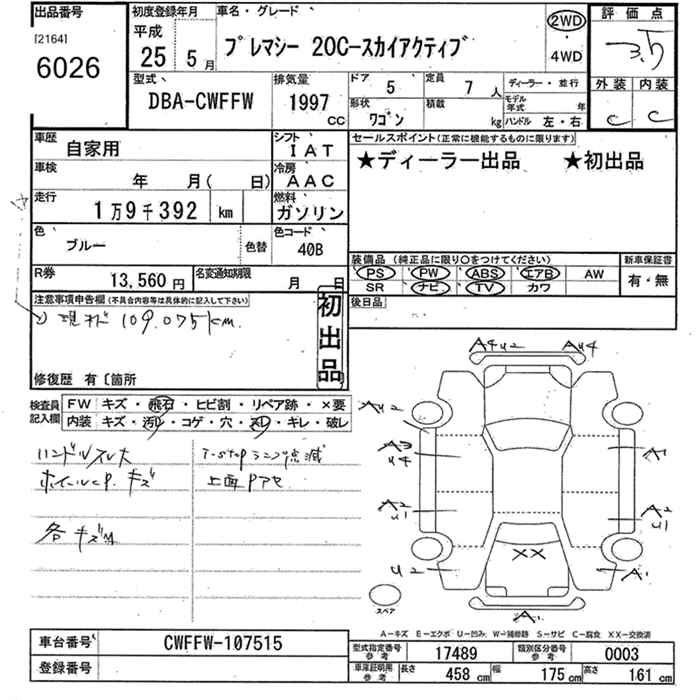 出品番号
[2164]
6026
初度登録年月
平成
25年 5月
車名・グレード
プレマシー 20C-スカイアクティブ
2WD
・
4WD
評価点
3.5
外装 内装
C C
型式
DBA-CWFFW
排気量
1997
CC
ドア 5
定員 7 人
形状 ワゴン
積載 kg
ディーラー・並行
モデル年式 年
ハンドル 左・右
車歴 自家用
シフト IAT
車検 年 月( 日)
冷房 AAC
走行 1万9千392 km
燃料 ガソリン
色 ブルー 色替
色コード 40B
R券 13,560円
名変通知期限 月 日
セールスポイント(正常に機能するものに限ります)
★ディーラー出品 ★初出品
装備品(純正品に限り○をつけてください)
新車保証書
PS PW ABS エアB AW
SR ナビ TV カワ
有・無
後日品
注意事項申告欄(不具合内容等は具体的に記入して下さい)
109.075km.
初出品
修復歴 有〔箇所
検査員記入欄
FW キズ・飛石・ヒビ割・リペア跡・×要
内装 キズ・汚レ・コゲ・穴・スレ・キレ・破レ
ハンドルスレ大
i-stopランプ点滅
ホイールCP.キズ
上面Pアセ
各キズM
A4U2
AU4
AU2
A3
U4
A2
U1
U2
A1
A2
U1
A1
××
A1
スペア
A-キズ E-エクボ U-凹み W-補修跡 S-サビ C-腐食 XX-交換済
車台番号 CWFFW-107515
登録番号
型式指定番号 参考 17489
類別区分番号 参考 0003
車庫証明用 参考 長さ 458 cm 幅 175 cm 高さ 161 cm